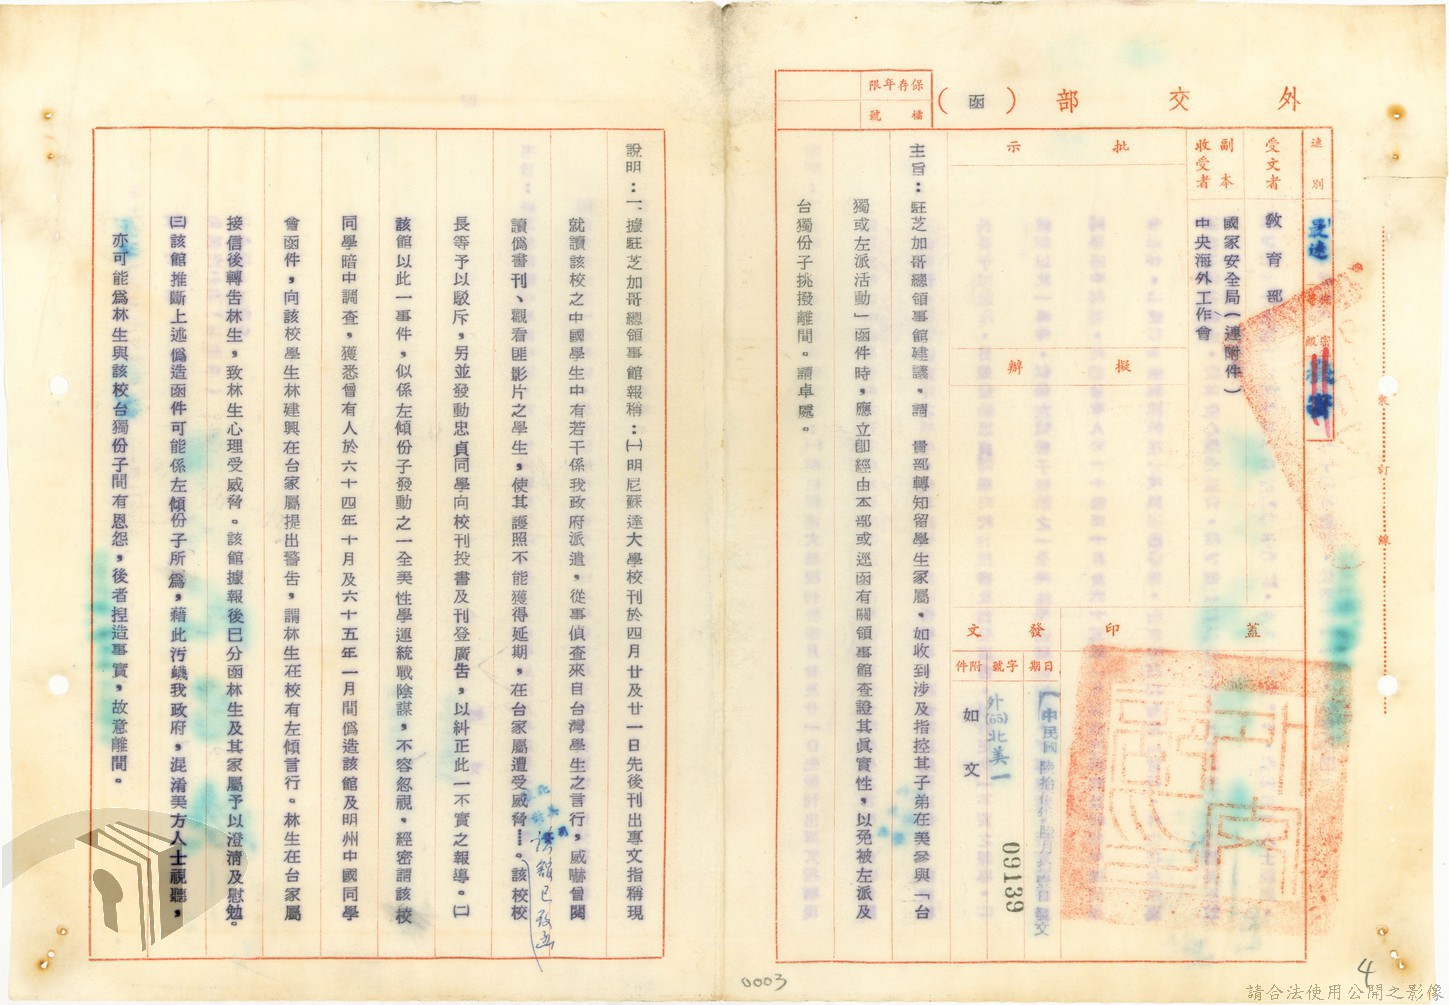 外交部（函）
保存年限
檔號
速別
最速
密等級
受文者
教育部
副本收受者
國家安全局（連附件）
中央海外工作會
批示
擬辦
蓋印
發文
日期
字號
附件
中民國
外(65)北美一
09139
如文
主旨：駐芝加哥總領事館建議，請　貴部轉知留學生家屬，如收到涉及指控其子弟在美參與「台
獨或左派活動」函件時，應立即經由本部或逕函有關領事館查證其眞實性，以免被左派及
台獨份子挑撥離間。請卓處。
說明：一、據駐芝加哥總領事館報稱：㈠明尼蘇達大學校刊於四月廿及廿一日先後刊出專文指稱現
就讀該校之中國學生中有若干係我政府派遣，從事偵查來自台灣學生之言行，威嚇曾閱
讀僞書刊、觀看匪影片之學生，使其護照不能獲得延期，在台家屬遭受威脅……。該校校
該館已致函
長等予以駁斥，另並發動忠貞同學向校刊投書及刊登廣告，以糾正此一不實之報導。㈡
該館以此一事件，似係左傾份子發動之一全美性學運統戰陰謀，不容忽視，經密謂該校
同學暗中調查，獲悉曾有人於六十四年十月及六十五年一月間僞造該館及明州中國同學
會函件，向該校學生林建興在台家屬提出警告，謂林生在校有左傾言行。林生在台家屬
接信後轉告林生，致林生心理受威脅。該館據報後已分函林生及其家屬予以澄清及慰勉。
㈢該館推斷上述僞造函件可能係左傾份子所爲，藉此污衊我政府，混淆美方人士視聽，
亦可能爲林生與該校台獨份子間有恩怨，後者揑造事實，故意離間。
裝訂線
0003
4
請合法使用公開之影像